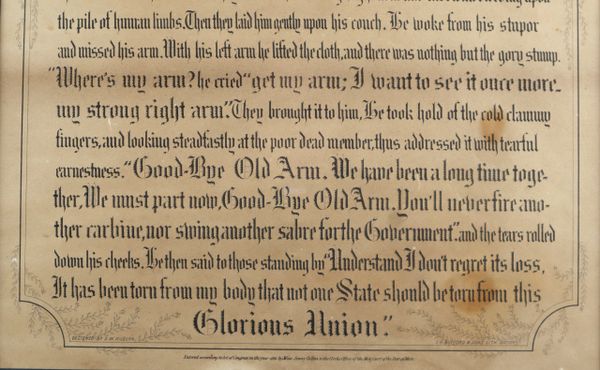 the pile of human limbs. Then they laid him gently upon his couch. He woke from his stupor
and missed his arm. With his left arm he lifted the cloth, and there was nothing but the gory stump.
"Where's my arm? he cried "get my arm; I want to see it once more_
my strong right arm". They brought it to him, He took hold of the cold clammy
fingers, and looking steadfastly at the poor dead member, thus addressed it with tearful
earnestness. "Good-Bye Old Arm. We have been a long time toge-
ther, We must part now, Good-Bye Old Arm. You'll never fire ano-
ther carbine, nor swing another sabre for the Government". and the tears rolled
down his cheeks. He then said to those standing by "Understand I don't regret its loss,
It has been torn from my body that not one State should be torn from this
Glorious Union."
DESIGNED BY
Entered according to Act of Congress in the year by Miss in the Clerk's Office of the